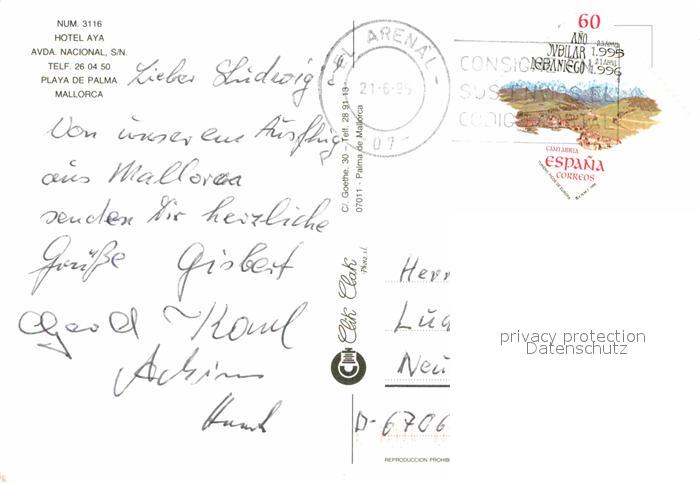 NUM. 3116
HOTEL AYA
AVDA. NACIONAL, S/N.
TELF. 26 04 50
PLAYA DE PALMA
MALLORCA
Lieber Ludwig!
Von unserem Ausflug
aus Mallorca
senden Dir herzliche
Grüße Gisbert
Gerold Karl
Achim
C/. Goethe, 30 - Telf. 28 91 13
07011 - Palma de Mallorca
Clik Clak
EL ARENAL
21-6-95
07
CONSIGNE
SUS ENVIOS EL
CODIGO POSTAL
60
AÑO
JUBILAR 1.995
LEBANIEGO 1.996
CANTABRIA
ESPAÑA
CORREOS
Herr
Lud
Neu
D-6706
privacy protection
Datenschutz
REPRODUCCION PROHIB